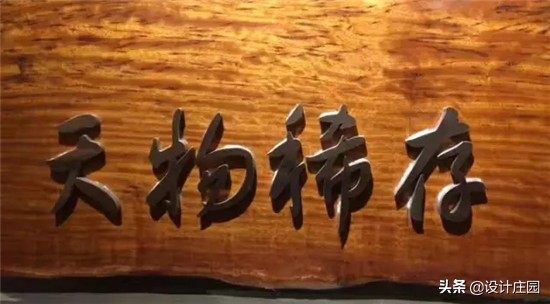 天物稀存
头条 @设计庄园